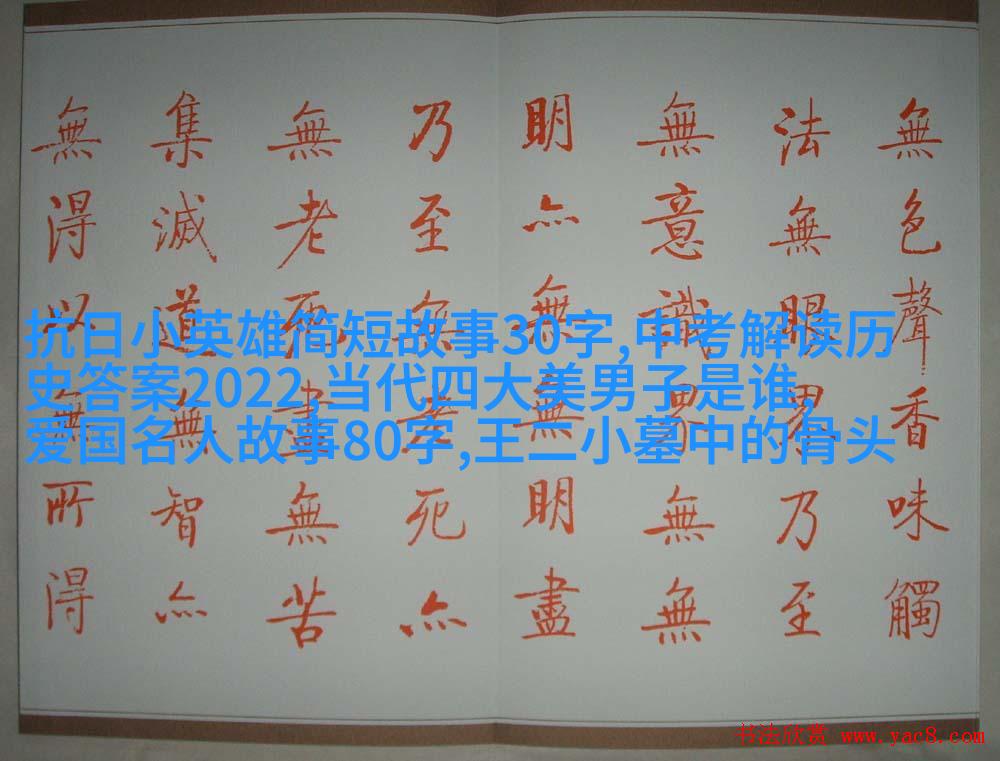 無色聲香味觸
法無眼界乃至
無意識界無無
明亦無無明盡
乃至無老死亦
無老死盡無苦
集滅道無智亦
無得以無所得
抗日小英雄简短故事30字,中考解读历
史答案2022,当代四大美男子是谁,
爱国名人故事80字,王二小墓中的骨头
书法欣赏 www.yac8.com